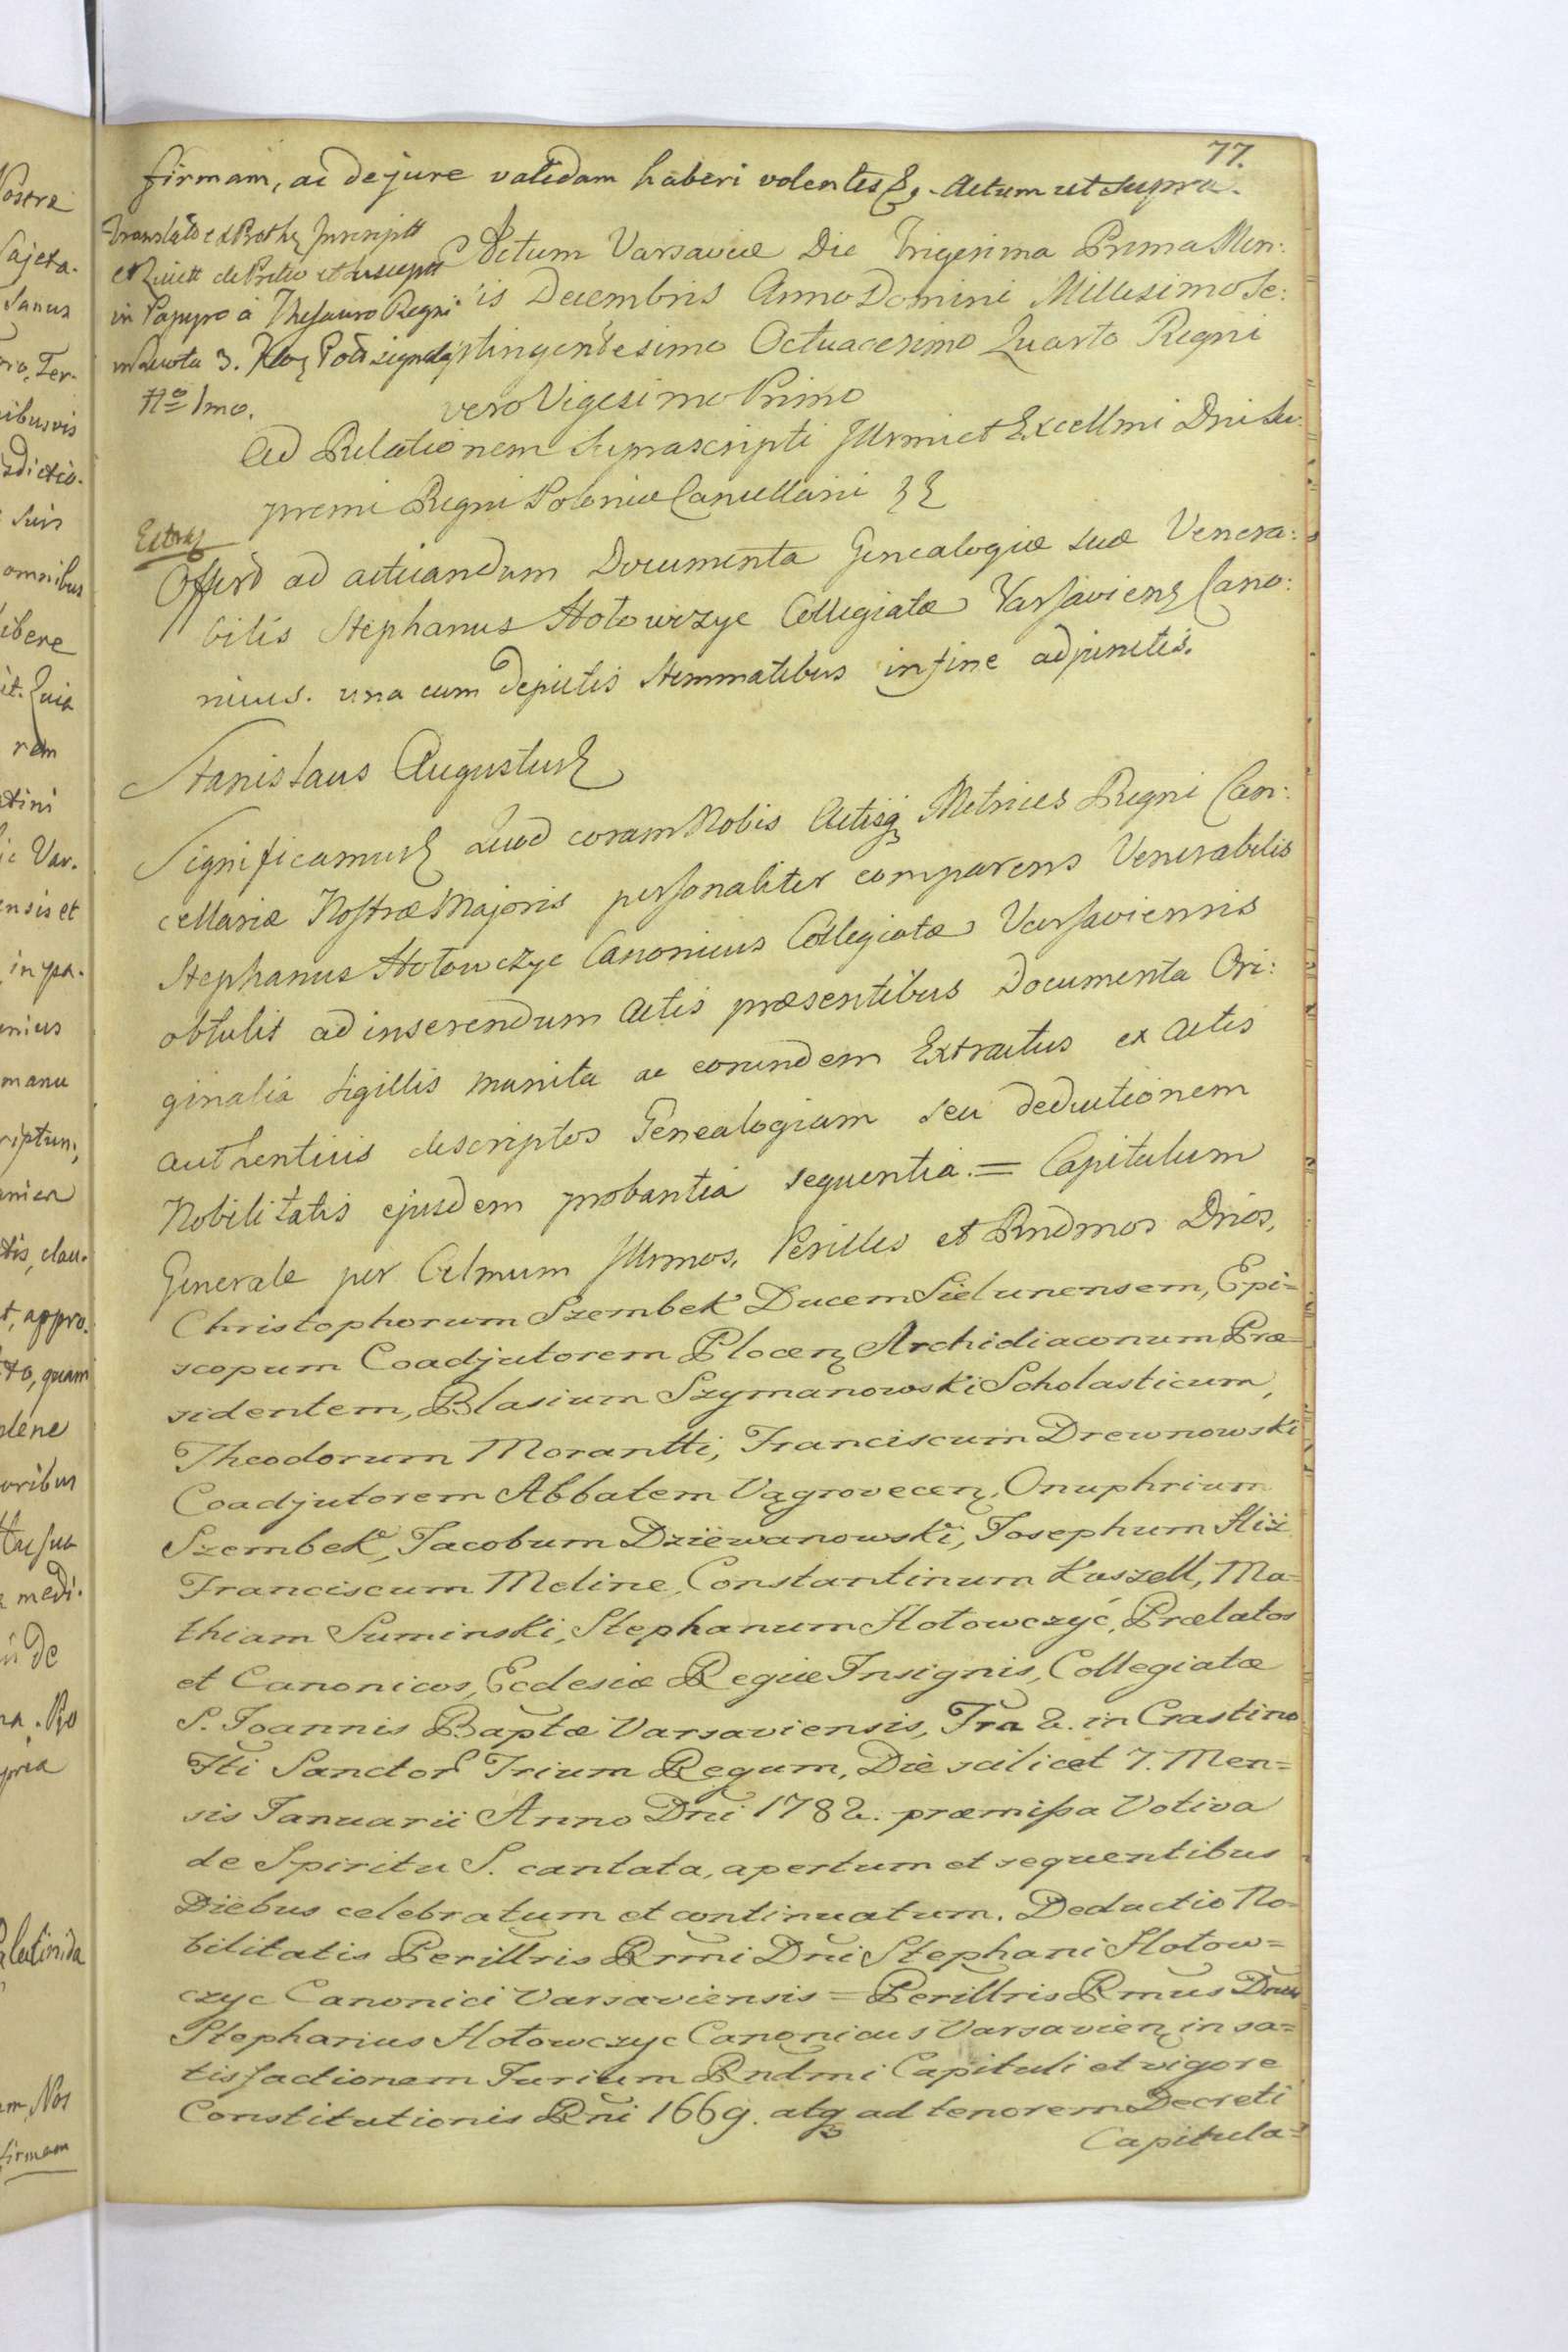 77.
firmam, ac de jure validam haberi volentes &. Actum ut supra.
in Papyro à Thesauro Regni
No 1mo.
Actum Varsaviæ Die Trigesima Prima Men:
is Decembris Anno Domini Millesimo Se:
ptingentesimo Octuagesimo Quarto Regni
vero Vigesimo Primo
Ad Relationem Suprascripti Illrmi et Excellmi Dni Su:
premi Regni Poloniæ Cancellarii
Extrad
Offert ad acticandum Documenta Genealogiæ suæ Venera:
bilis Stephanus Hołowczyc Collegiatæ Varsaviens Cano:
nicus. una cum depictis Stemmatibus in fine adjunctis.
Stanislaus Augustus
Significamus Quod coram Nobis Actisq Metrices Regni Can:
cellariæ Nostræ Majoris personaliter comparens Venerabilis
Stephanus Hołowczyc Canonicus Collegiatæ Varsaviensis
obtulit ad inserendum Actis præsentibus Documenta Ori:
ginalia sigillis munita ac eorundem Extractus ex Actis
authenticis descriptos Genealogiam seu deductionem
Nobilitatis ejusdem probantia sequentia. = Capitulum
Generale per Celmum Illrmos, Perilles et Rndmos Dnos,
Christophorum Szembek Ducem Sielunensem, Epi=
scopum Coadjutorem Plocen Archidiaconum Præ=
sidentem, Blasium Szymanowski Scholasticum,
Theodorum Morantti, Franciscum Drewnowski
Coadjutorem Abbatem Vągrovecen, Onuphrium
Szembek, Jacobum Dziewanowski, Josephum Hiż
Franciscum Meline, Constantinum Kuszell, Ma=
thiam Suminski, Stephanum Hołowczyć, Prælatos
et Canonicos, Ecclesiæ Regiæ Insignis, Collegiatæ
S. Joannis Baptæ Varsaviensis, Fra 2. in Crastino
Fti Sanctor Trium Regum, Die scilicet 7. Men=
sis Januarii Anno Dni 1782. præmissa Votiva
de Spiritu S. cantata, apertum et sequentibus
Diebus celebratum et continuatum. Deductio No=
bilitatis Perillris Rrmi Dni Stephani Hołow=
czyc Canonici Varsaviensis = Perillris Rmus Dnus
Stephanus Hołowczyc Canonicus Varsavien in sa=
tisfactionem Jurium Rndmi Capituli et vigore
Constitutionis Rni 1669. atq ad tenorem Decreti
Capitula=